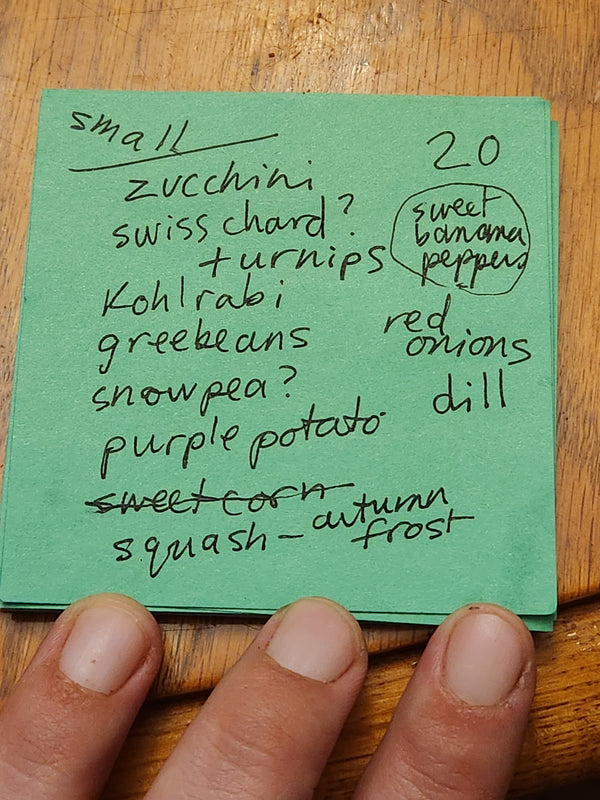 small
20
zucchini
swiss chard?
turnips
Kohlrabi
greebeans
snowpea?
purple potato
sweet corn
squash - autumn
frost
sweet
banana
peppers
red
onions
dill